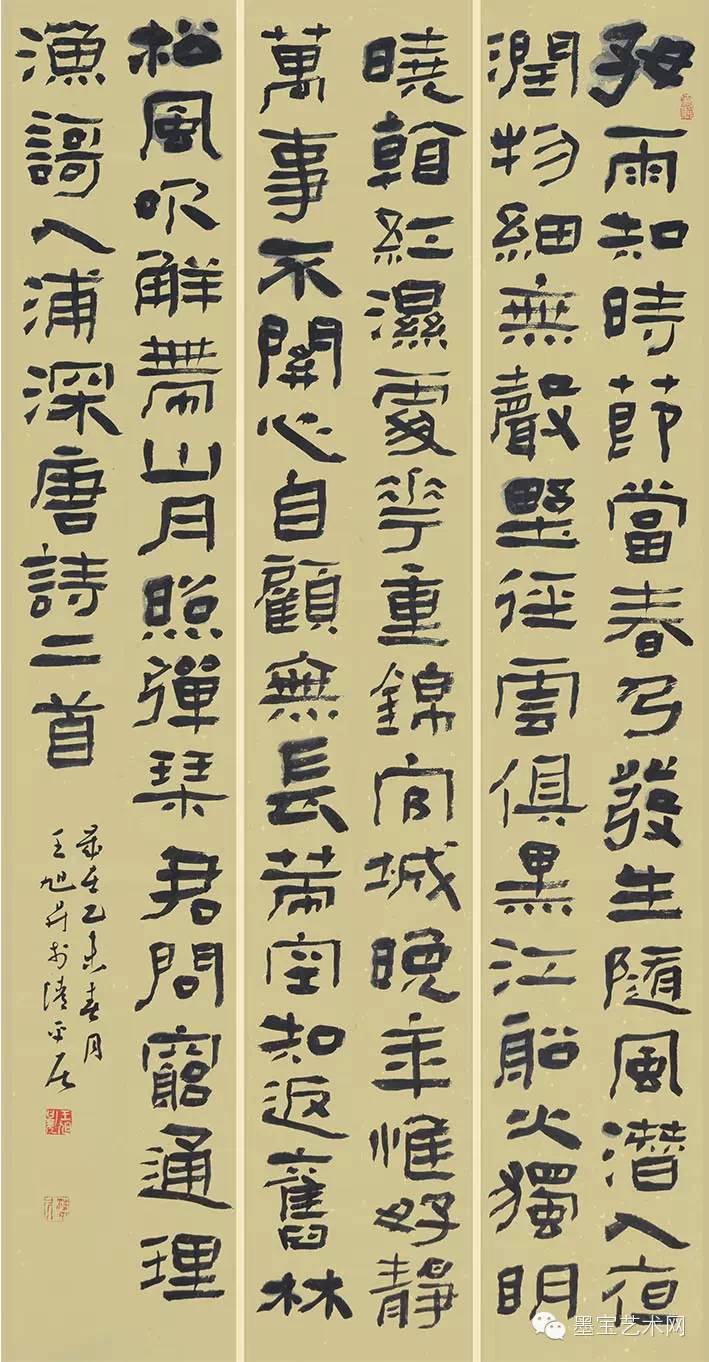 好雨知時節當春乃發生隨風潛入夜
潤物細無聲野徑雲俱黑江船火獨明
曉看紅濕處花重錦官城晚年惟好靜
萬事不關心自顧無長策空知返舊林
松風吹解帶山月照彈琴君問窮通理
漁謌入浦深唐詩二首
歲在乙未春月
王旭書於清平居
墨宝艺术网